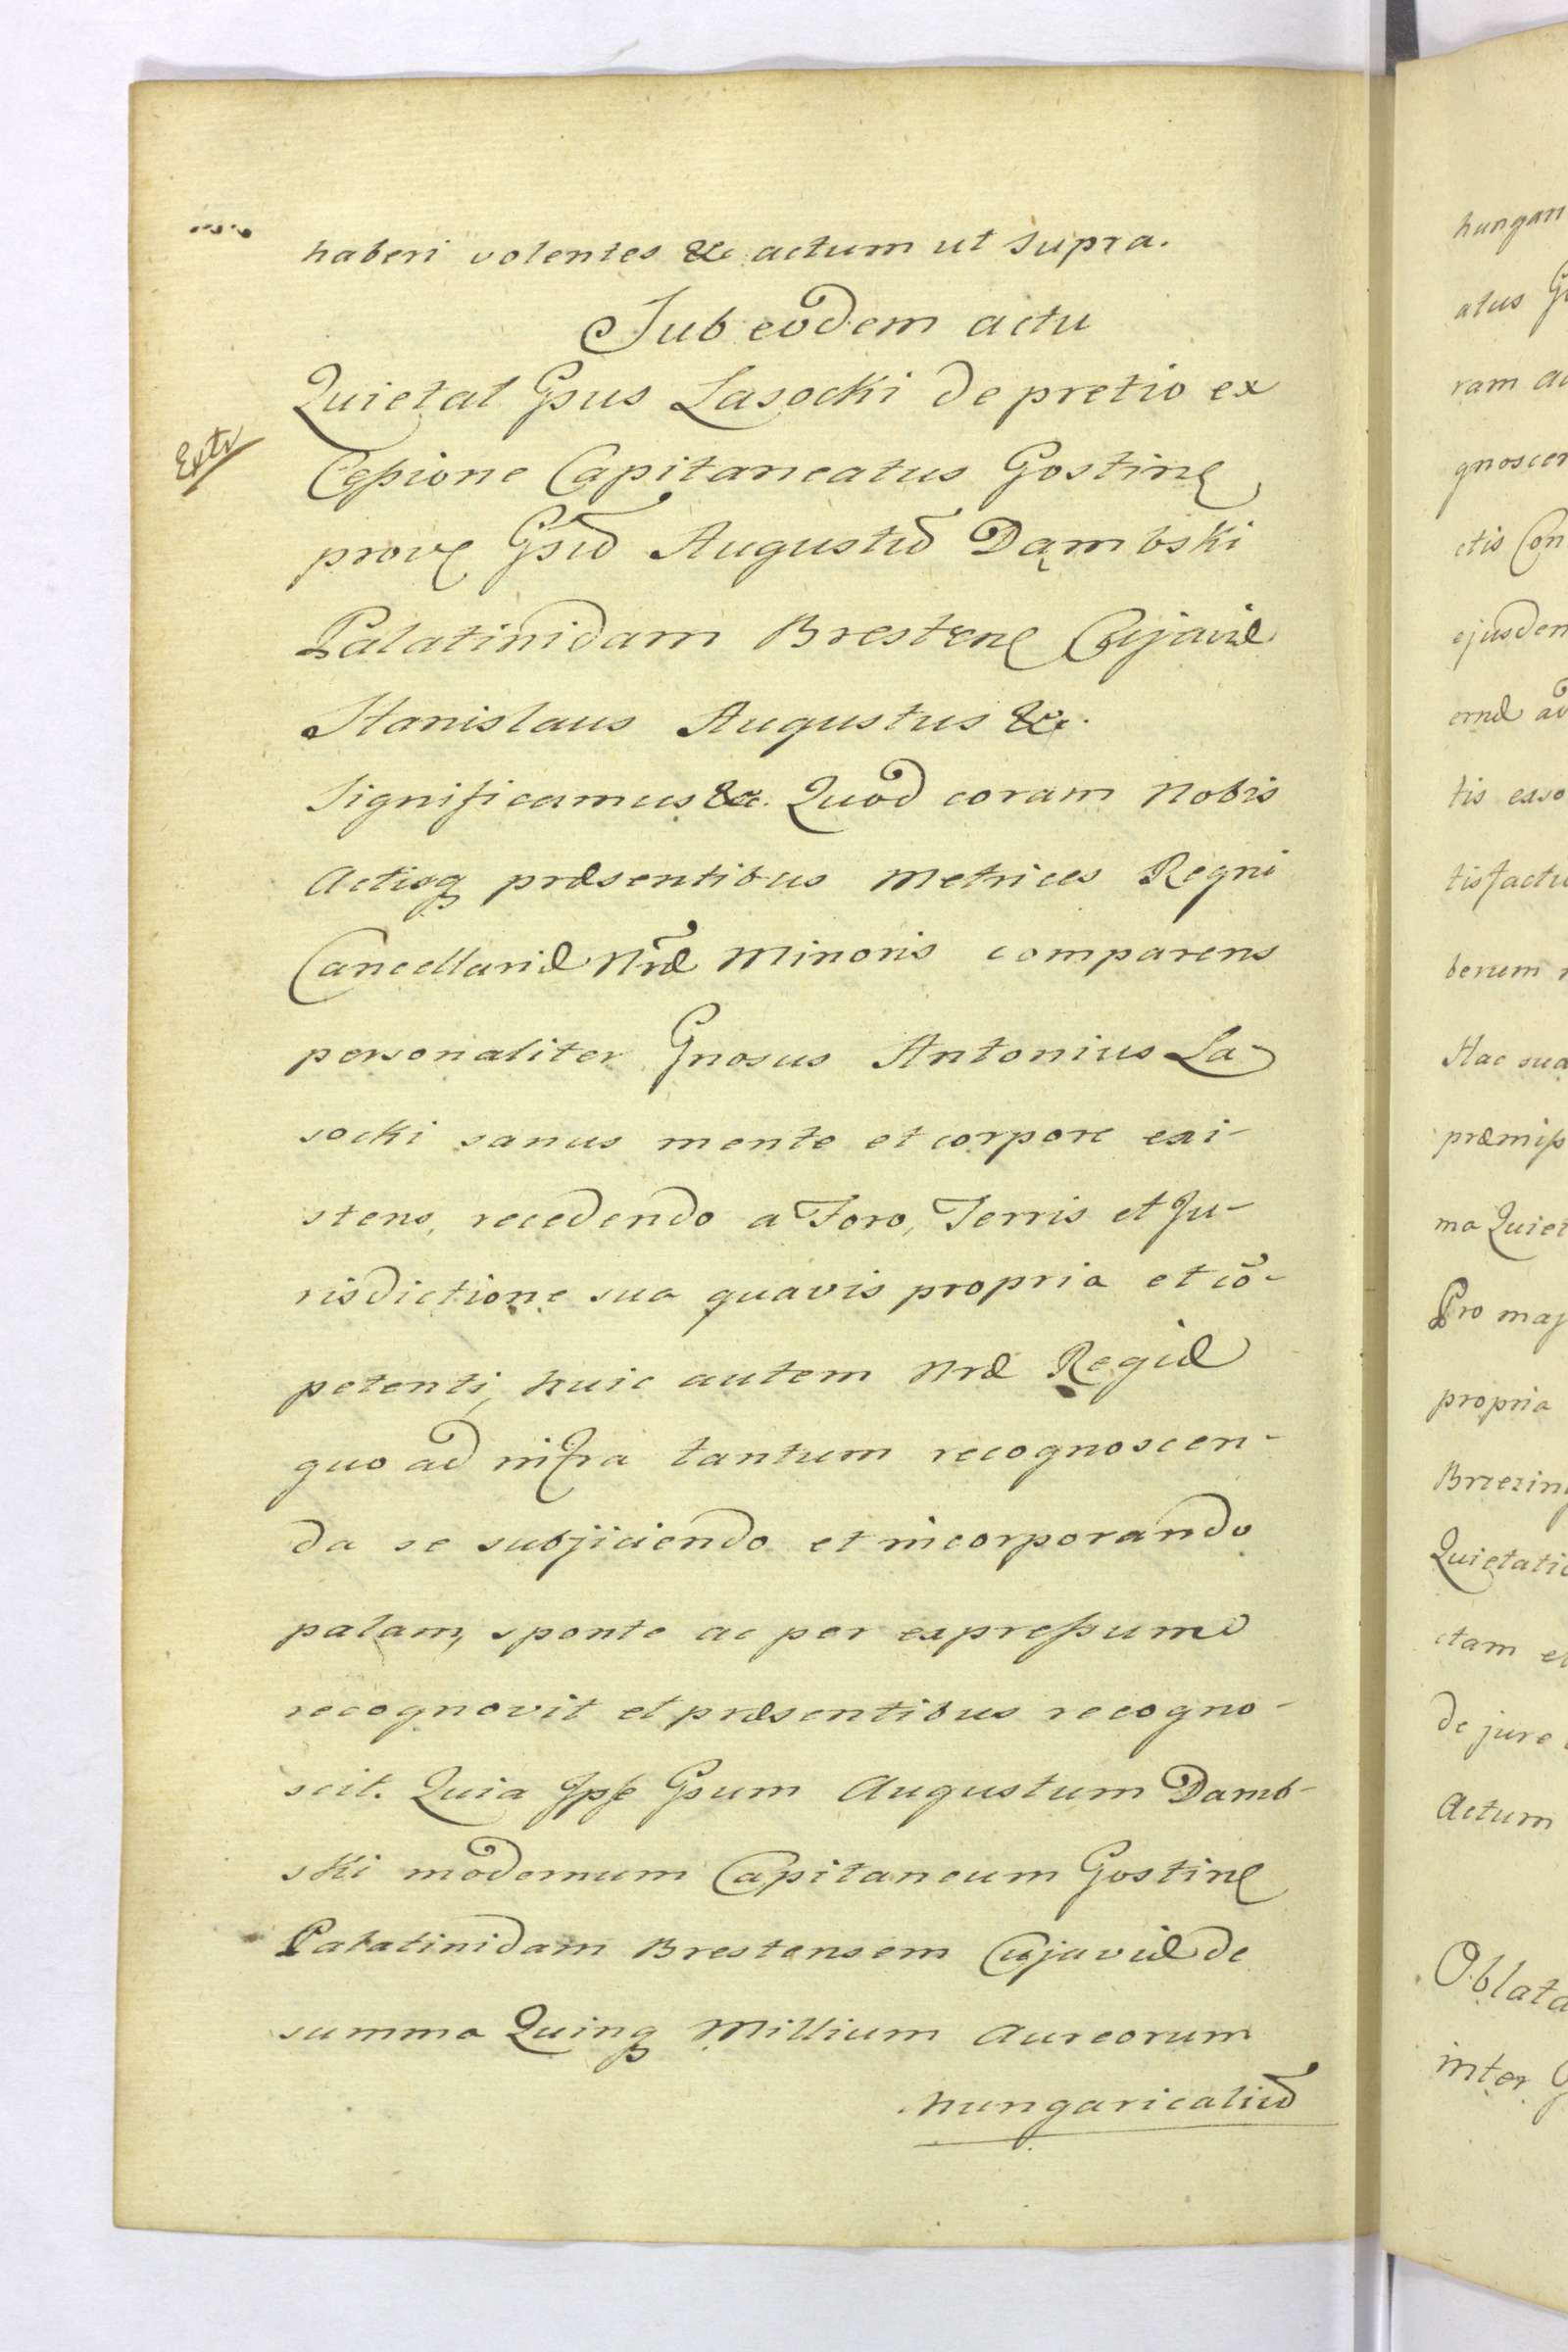 haberi volentes &c actum ut supra.
Sub eodem actu
Quietat Gsus Lasocki de pretio ex
Extr
Cessione Capitaneatus Gostinę
prove Gsũ Augustũ Dąmbski
Palatinidam Brestenę Cujaviæ
Stanislaus Augustus &c.
Significamus &c. Quod coram Nobis
Actisq præsentibus Metrices Regni
Cancellariæ Nræ Minoris comparens
personaliter Gnosus Antonius La-
socki sanus mente et corpore exi-
stens, recedendo a Foro, Terris et Ju-
risdictione sua quavis propria et cõ-
petenti, huic autem Nræ Regiæ
quo ad infra tantum recognoscen-
da se subjiciendo et incorporando
palam, sponte ac per expressum
recognovit et præsentibus recogno-
scit. Quia Ipse Gsum Augustum Damb-
ski modernum Capitaneum Gostinę
Palatinidam Brestensem Cujaviæ de
summa Quinq Millium Aureorum
hungaricaliũ
hungari
atus
ram
gnoscen
ctis Con
ejusdem
ernæ ad
tis exso
tisfactu
berum
Hac sua
præmiss
ma Quiet
Pro maj
propria
Brzezin
Quietatio
ctam et
de jure
Actum
Oblata
inter G